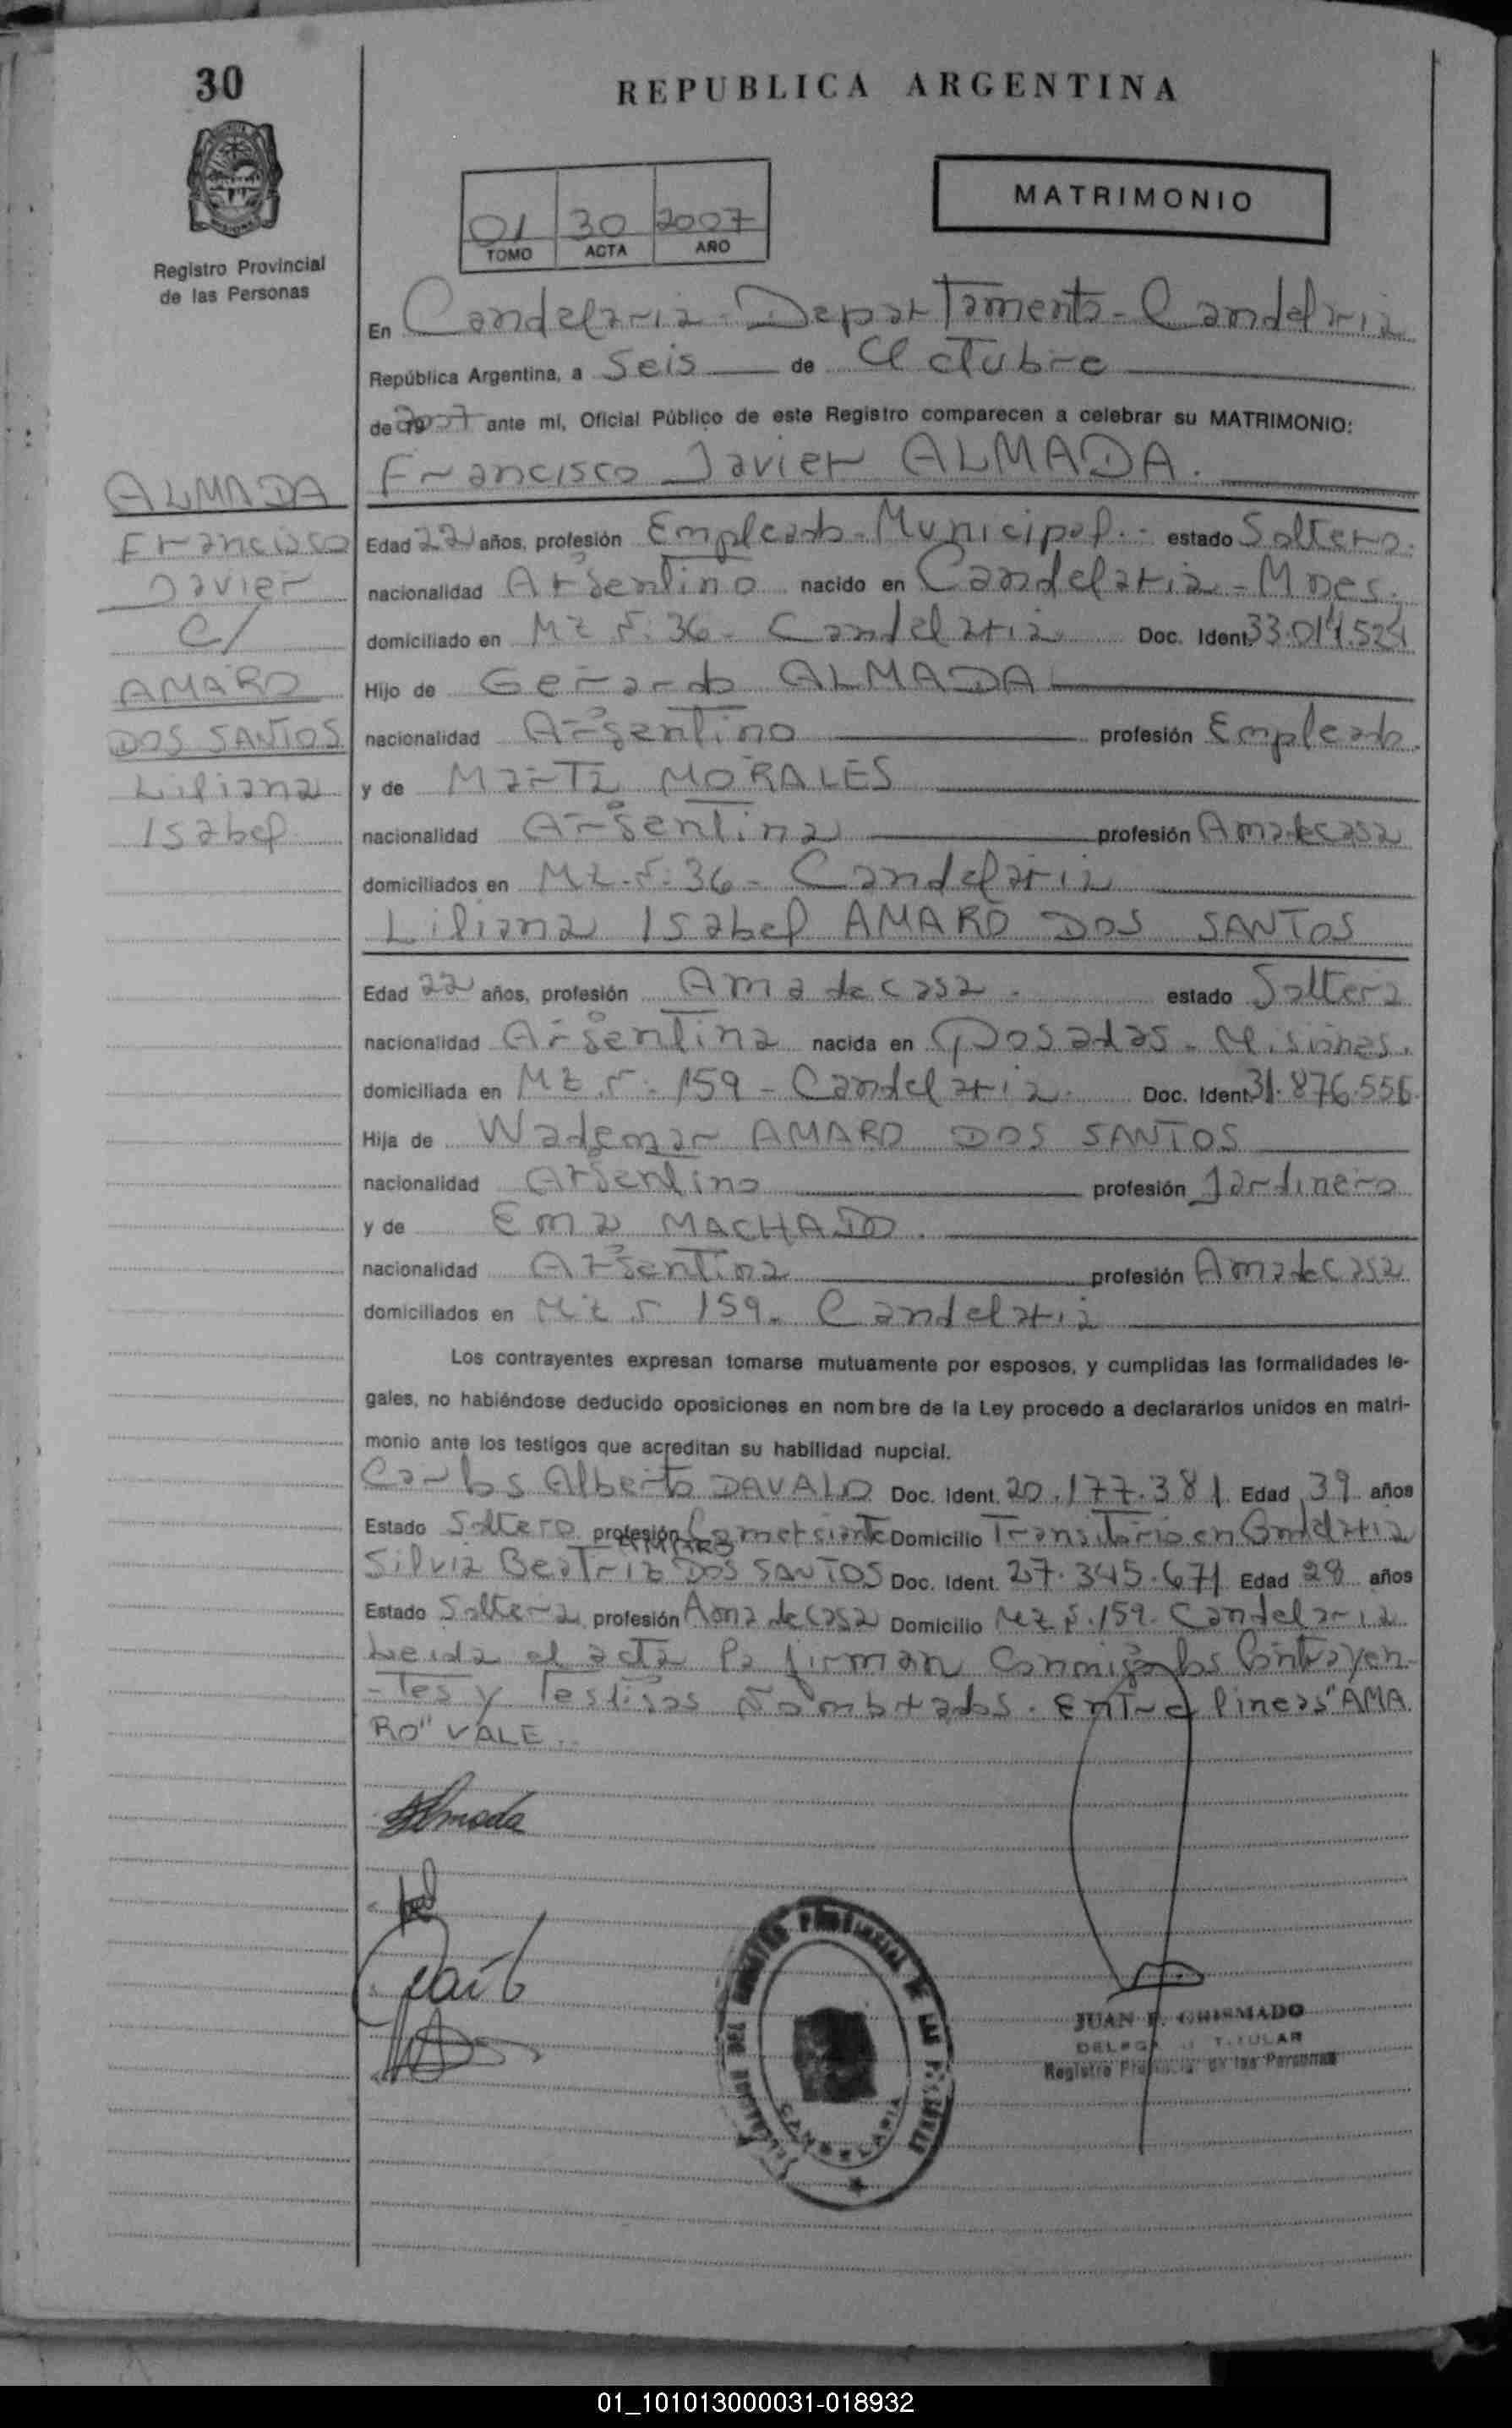 30
REPUBLICA ARGENTINA
Registro Provincial
de las Personas
01 30 2007
TOMO ACTA AÑO
MATRIMONIO
En Candelaria - Departamento - Candelaria
República Argentina, a Seis de Octubre
de 2007 ante mi, Oficial Público de este Registro comparecen a celebrar su MATRIMONIO:
Francisco Javier ALMADA.
ALMADA
Francisco
Javier
C/
AMARO
DOS SANTOS
Liliana
Isabel
Edad 22 años, profesión Empleado - Municipal.- estado Soltero.
nacionalidad Argentino nacido en Candelaria - Mnes.
domiciliado en Mz N: 36 - Candelaria Doc. Ident. 33.014.524
Hijo de Gerardo ALMADA
nacionalidad Argentino profesión Empleado.
y de Marta MORALES
nacionalidad Argentina profesión Ama de casa
domiciliados en Mz. N: 36 - Candelaria
Liliana Isabel AMARO DOS SANTOS
Edad 22 años, profesión Ama de casa - estado Soltera
nacionalidad Argentina nacida en Posadas - Misiones.
domiciliada en Mz N: 159 - Candelaria. Doc. Ident. 31.876.556.
Hija de Wademar AMARO DOS SANTOS
nacionalidad Argentino profesión Jardinero
y de Ema MACHADO.
nacionalidad Argentina profesión Ama de casa
domiciliados en Mz N 159. Candelaria
Los contrayentes expresan tomarse mutuamente por esposos, y cumplidas las formalidades le-
gales, no habiéndose deducido oposiciones en nombre de la Ley procedo a declararlos unidos en matri-
monio ante los testigos que acreditan su habilidad nupcial.
Carlos Alberto DAVALO Doc. Ident. 20.177.381 Edad 39 años
Estado Soltero profesión Comersiante Domicilio Transitorio en Candelaria
AMARO
Silvia Beatriz DOS SANTOS Doc. Ident. 27.345.671 Edad 28 años
Estado Soltera profesión Ama de casa Domicilio Mz N. 159. Candelaria
Leida el acta la firman conmigo los Contrayen-
-tes y Testigos Nombrados. Entre lineas "AMA
RO" VALE.
Almada
REGISTRO PROVINCIAL DE LAS PERSONAS
CANDELARIA
JUAN
TITULAR
Registro Provincial de las Personas
01_101013000031-018932